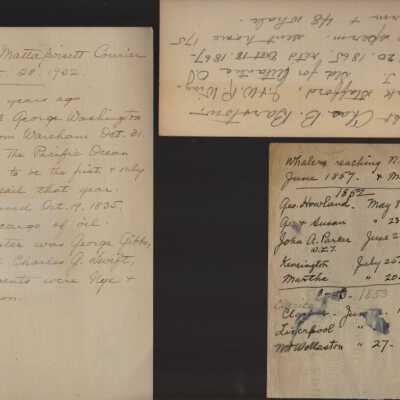 Mattapoisett Courier
20' 1902.
years ago
George Washington
Wareham Oct. 31.
The Pacific Ocean
to be the first & only
sail that year.
Oct. 19, 1835,
cargo of oil.
was George Gibbs,
Charles G. Swift,
were Nye &
Chas B. Barstow.
Stafford, I. & W. P. Wing.
Sld for Atlantic
20. 1865. retd Oct. 18. 1867-
sperm. sent home 175
sperm & 48 whale.
Whalers reaching N.
June 1857. &
1852
Geo. Howland. May 8
Geo & Susan " 23
John A. Parker June 2
W.I.T.
Kensington July 25
Martha " 20
1853
Clipper - June 1
Liverpool "
Mt Wollaston " 27-